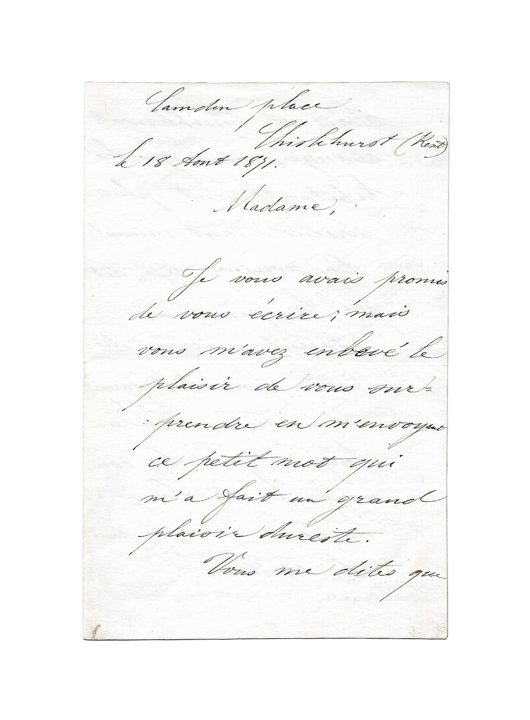 Camden place
Chislehurst (Kent)
le 18 Aout 1871.
Madame,
Je vous avais promis
de vous écrire; mais
vous m'avez enlevé le
plaisir de vous sur-
-prendre en m'envoyant
ce petit mot qui
m'a fait un grand
plaisir dureste.
Vous me dites que